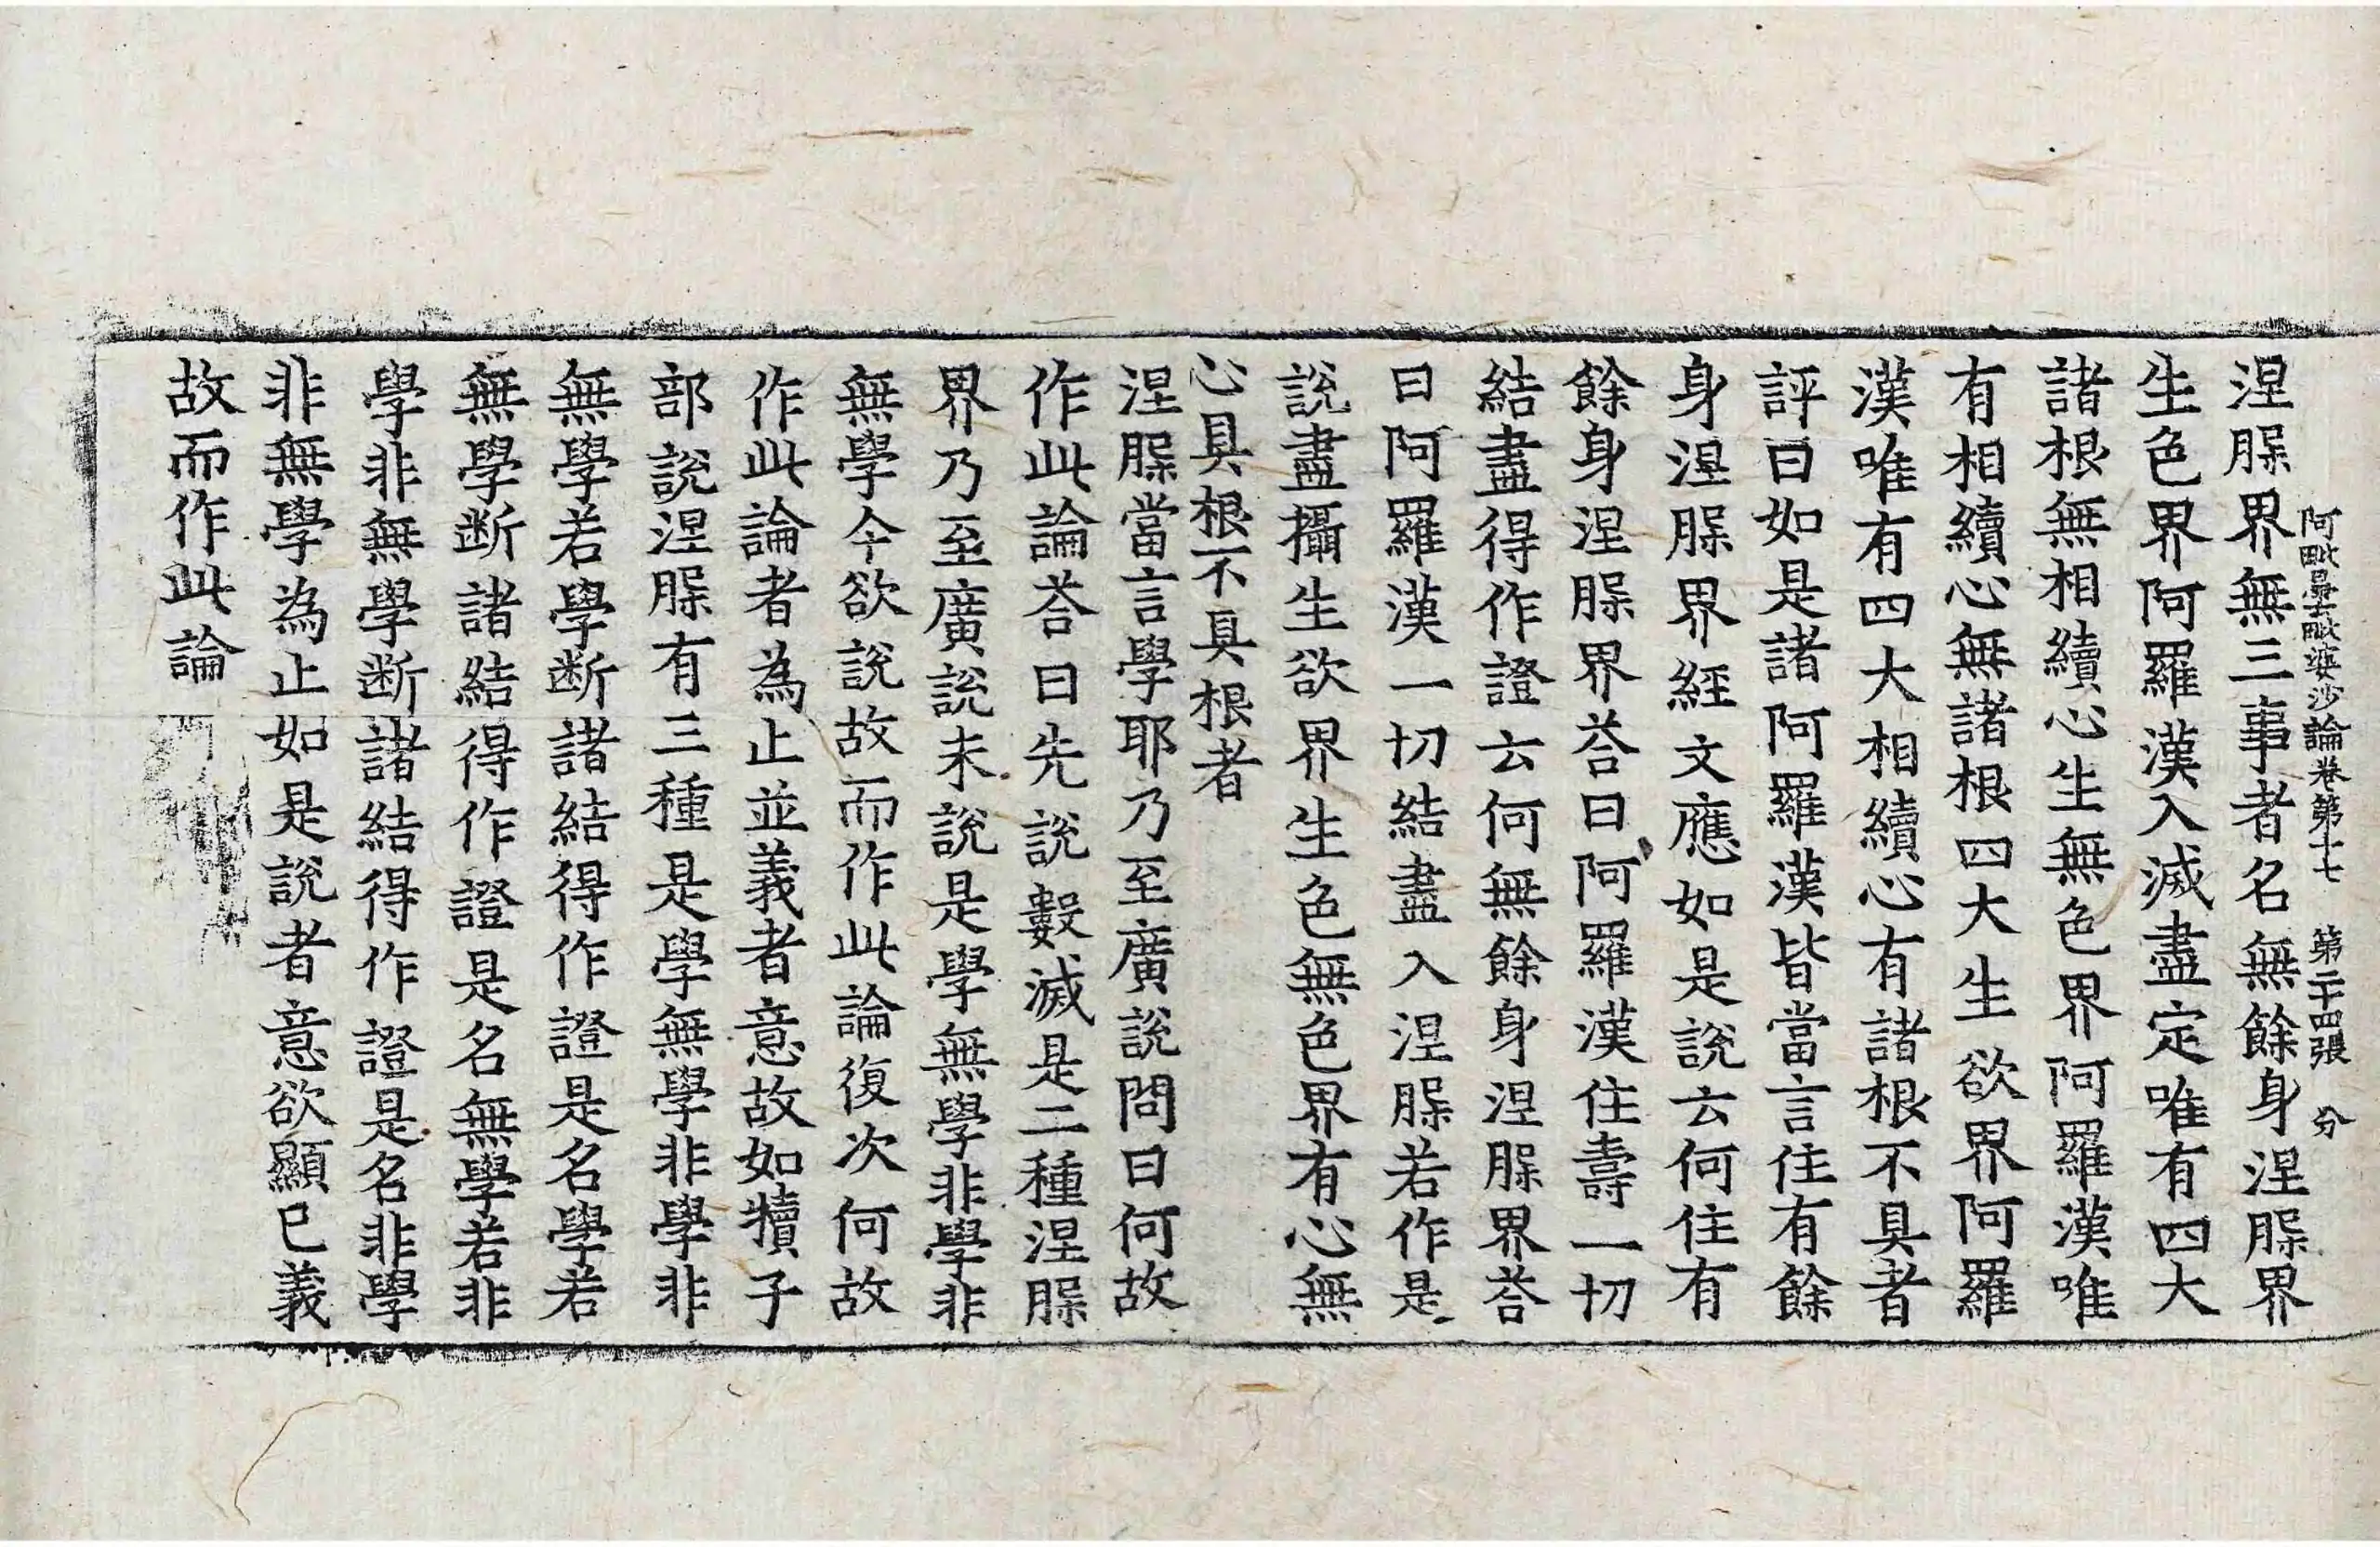 阿毗曇毗婆沙論卷第十七 第二十四張 分
涅䏶界無三事者名無餘身涅䏶界
生色界阿羅漢入滅盡定唯有四大
諸根無相續心生無色界阿羅漢唯
有相續心無諸根四大生欲界阿羅
漢唯有四大相續心有諸根不具者
評曰如是諸阿羅漢皆當言住有餘
身涅䏶界經文應如是說云何住有
餘身涅䏶界荅曰阿羅漢住壽一切
結盡得作證云何無餘身涅䏶界荅
曰阿羅漢一切結盡入涅䏶若作是
說盡攝生欲界生色無色界有心無
心具根不具根者
涅䏶當言學耶乃至廣說問曰何故
作此論荅曰先說數滅是二種涅䏶
界乃至廣說未說是學無學非學非
無學今欲說故而作此論復次何故
作此論者為止並義者意故如犢子
部說涅䏶有三種是學無學非學非
無學若學斷諸結得作證是名學若
無學斷諸結得作證是名無學若非
學非無學斷諸結得作證是名非學
非無學為止如是說者意欲顯已義
故而作此論